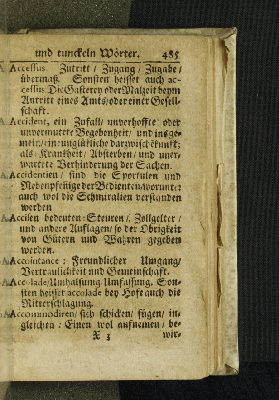 und tunckeln Wörter. 485
Accessus. Zutritt / Zugang / Zugabe /
übermaß. Sonsten heisset auch ac-
cessus Die Gasterey oder Malzeit beym
Antritt eines Amts / oder einer Gesell-
schaft.
Accident, ein Zufall / unverhoffte oder
unvermutete Begebenheit / und insge-
mein / ein unglückliche darzwischenkunft;
als / Kranckheit / Absterben / und uner-
wartete Verhinderung der Sachen.
Accidentien / sind die Sportulen und
Nebenpfenige der Bedienten, worunter
auch wol die Schmiralien verstanden
werden
Accisen bedeuten Steuren / Zollgelter /
und andere Auflagen / so der Obrigkeit
von Gütern und Wahren gegeben
werden.
Accointance : Freundlicher Umgang /
Vertraulichkeit und Gemeinschaft.
Accolade / Umhalsung / Umfassung. Son-
sten heisset accolade bey Hofe auch die
Ritterschlagung.
Accommodiren / sich schicken / fügen / in-
gleichen : Einen wol aufnemen / be-
X 3 wir-